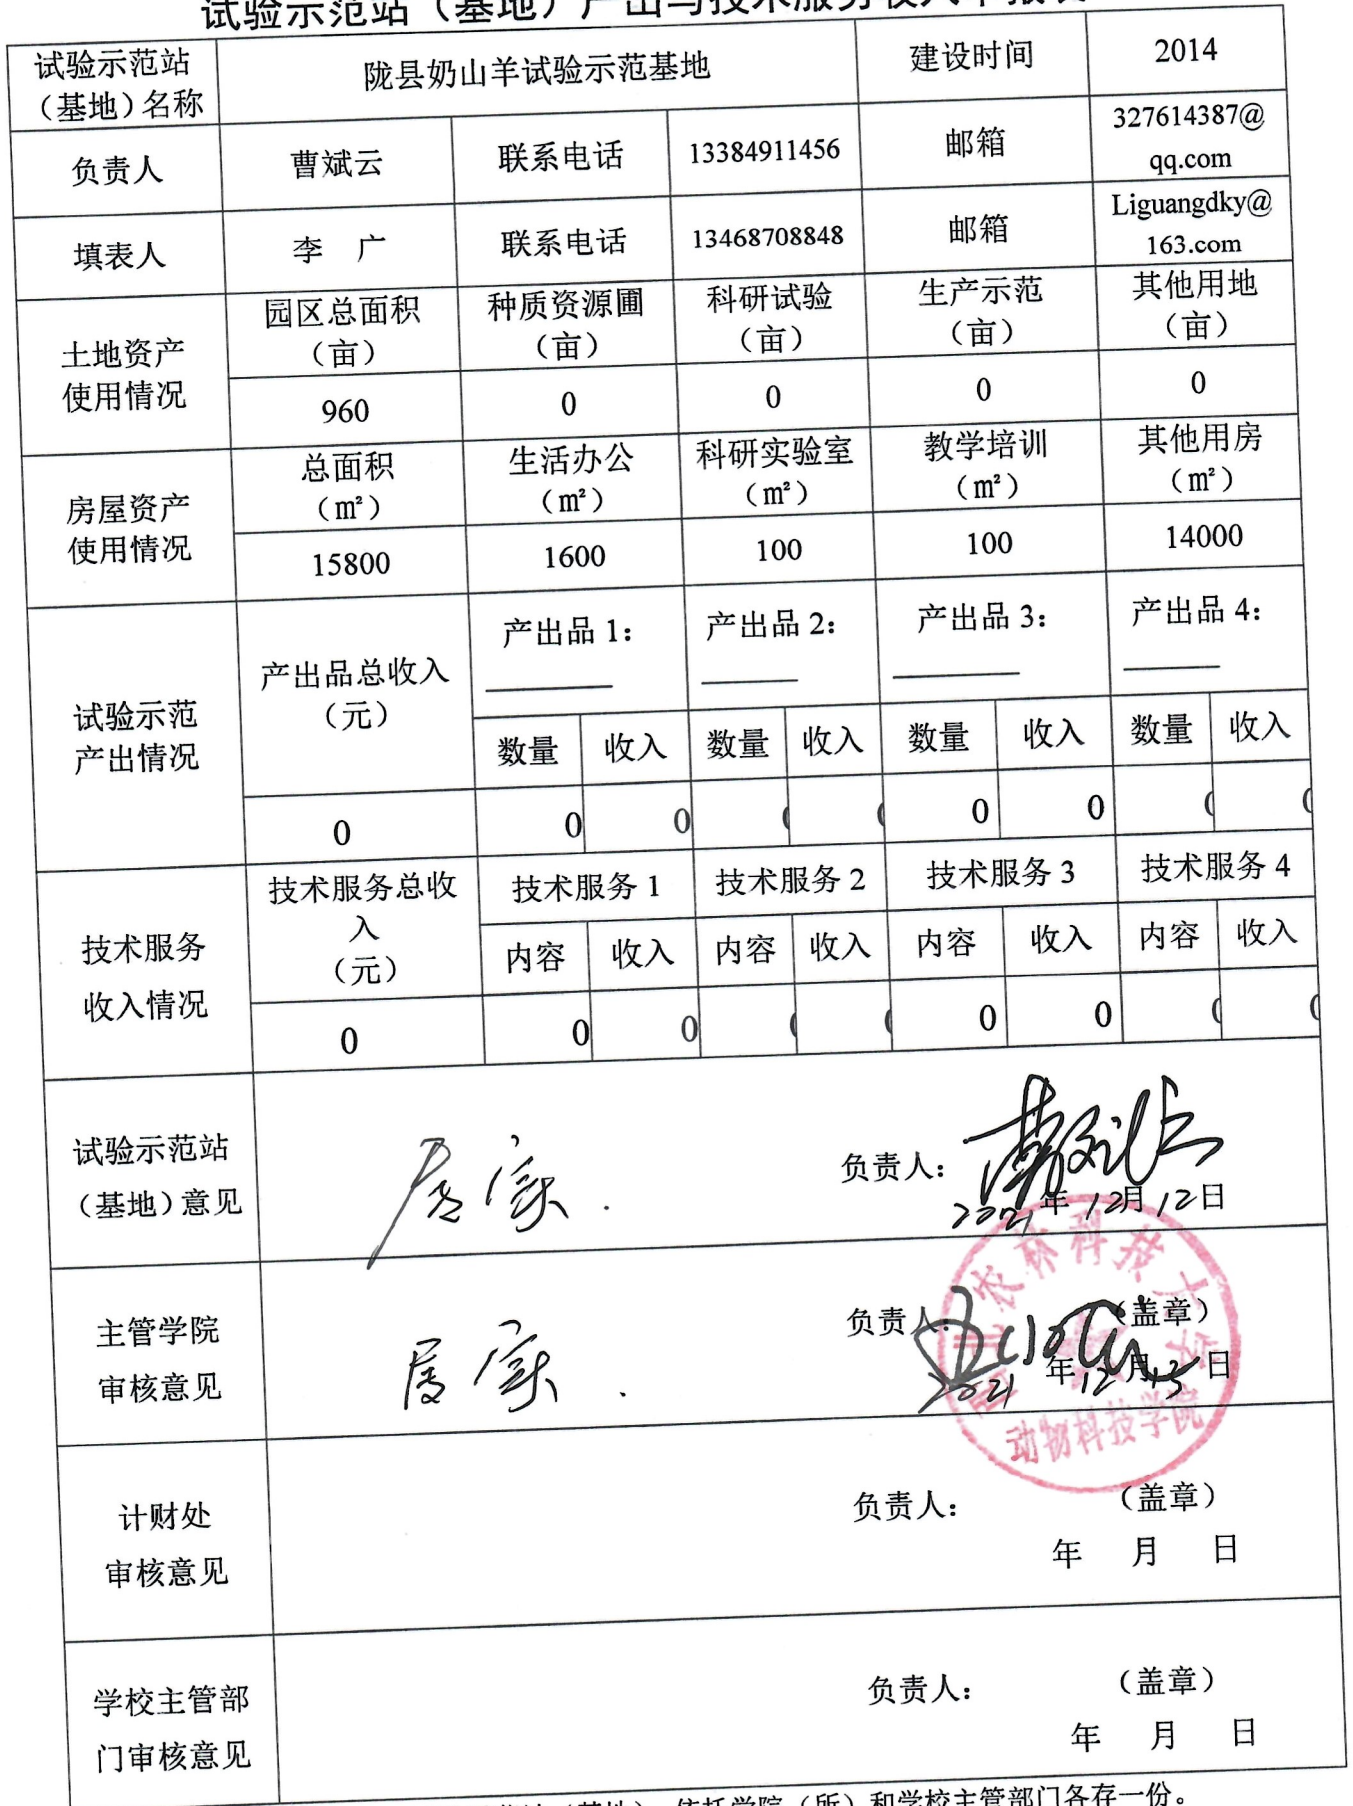 试验示范站（基地）产出与技术服务收入年报表
试验示范站
（基地）名称
陇县奶山羊试验示范基地
建设时间
2014
负责人
曹斌云
联系电话
13384911456
邮箱
327614387@
qq.com
填表人
李 广
联系电话
13468708848
邮箱
Liguangdky@
163.com
土地资产
使用情况
园区总面积
（亩）
种质资源圃
（亩）
科研试验
（亩）
生产示范
（亩）
其他用地
（亩）
960
0
0
0
0
房屋资产
使用情况
总面积
（㎡）
生活办公
（㎡）
科研实验室
（㎡）
教学培训
（㎡）
其他用房
（㎡）
15800
1600
100
100
14000
试验示范
产出情况
产出品总收入
（元）
产出品 1：
产出品 2：
产出品 3：
产出品 4：
数量
收入
数量
收入
数量
收入
数量
收入
0
0
0
0
0
0
0
0
0
技术服务
收入情况
技术服务总收
入
（元）
技术服务 1
技术服务 2
技术服务 3
技术服务 4
内容
收入
内容
收入
内容
收入
内容
收入
0
0
0
0
0
0
0
0
0
试验示范站
（基地）意见
属实.
负责人：
曹斌云
2021年12月12日
主管学院
审核意见
属实.
负责人：
（盖章）
2021年12月13日
西北农林科技大学
动物科技学院
计财处
审核意见
负责人：
（盖章）
年 月 日
学校主管部
门审核意见
负责人：
（盖章）
年 月 日
（基地）、依托学院（所）和学校主管部门各存一份。